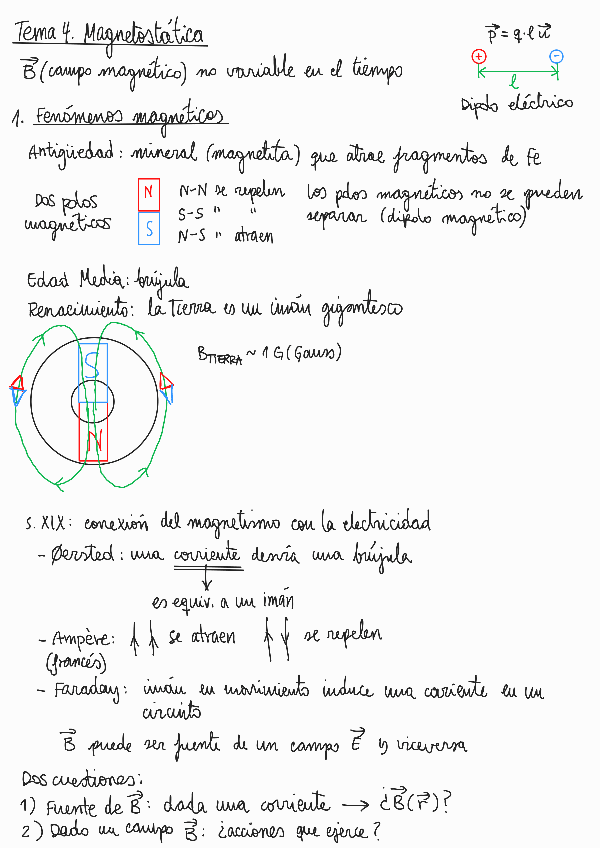 Tema 4. Magnetostática
B⃗ (campo magnético) no variable en el tiempo
p⃗ = q·l u⃗
+
-
l
Dipolo eléctrico
1. Fenómenos magnéticos
Antigüedad: mineral (magnetita) que atrae fragmentos de Fe
Dos polos
magnéticos
N
S
N-N se repelen
S-S " "
N-S " atraen
los polos magnéticos no se pueden
separar (dipolo magnético)
Edad Media: brújula
Renacimiento: la Tierra es un imán gigantesco
S
N
B_TIERRA ~ 1 G (Gauss)
s. XIX: conexión del magnetismo con la electricidad
- Øersted: una corriente desvía una brújula
es equiv. a un imán
- Ampère: ↑↑ se atraen ↑↓ se repelen
(francés)
- Faraday: imán en movimiento induce una corriente en un
circuito
B⃗ puede ser fuente de un campo E⃗ y viceversa
Dos cuestiones:
1) Fuente de B⃗: dada una corriente → ¿B⃗(r⃗)?
2) Dado un campo B⃗: ¿acciones que ejerce?